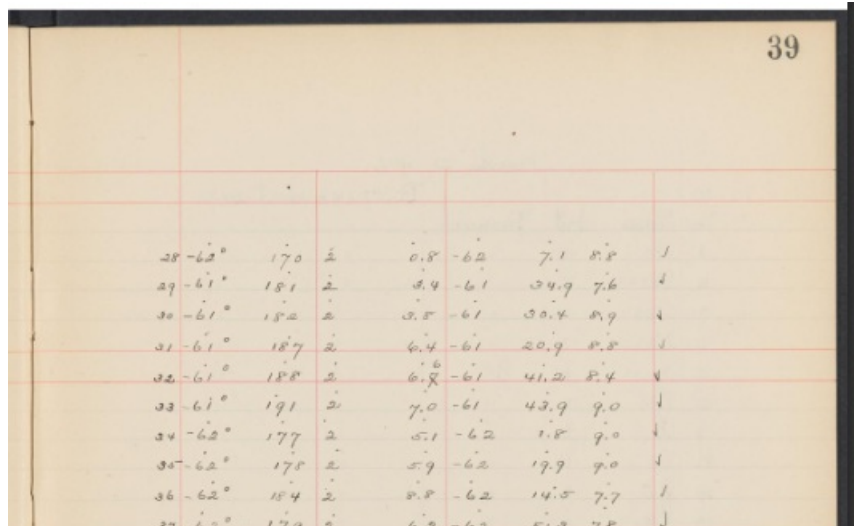 39
28 -62° 170 2 0.8 -62 7.1 8.8 ✓
29 -61° 181 2 3.4 -61 34.9 7.6 ✓
30 -61° 182 2 3.8 -61 30.4 8.9 ✓
31 -61° 187 2 6.4 -61 20.9 8.8 ✓
32 -61° 188 2 6.8 6 -61 41.2 8.4 ✓
33 -61° 191 2 7.0 -61 43.9 9.0 ✓
34 -62° 177 2 5.1 -62 1.8 9.0 ✓
35 -62° 178 2 5.9 -62 19.9 9.0 ✓
36 -62° 184 2 8.8 -62 14.5 7.7 ✓